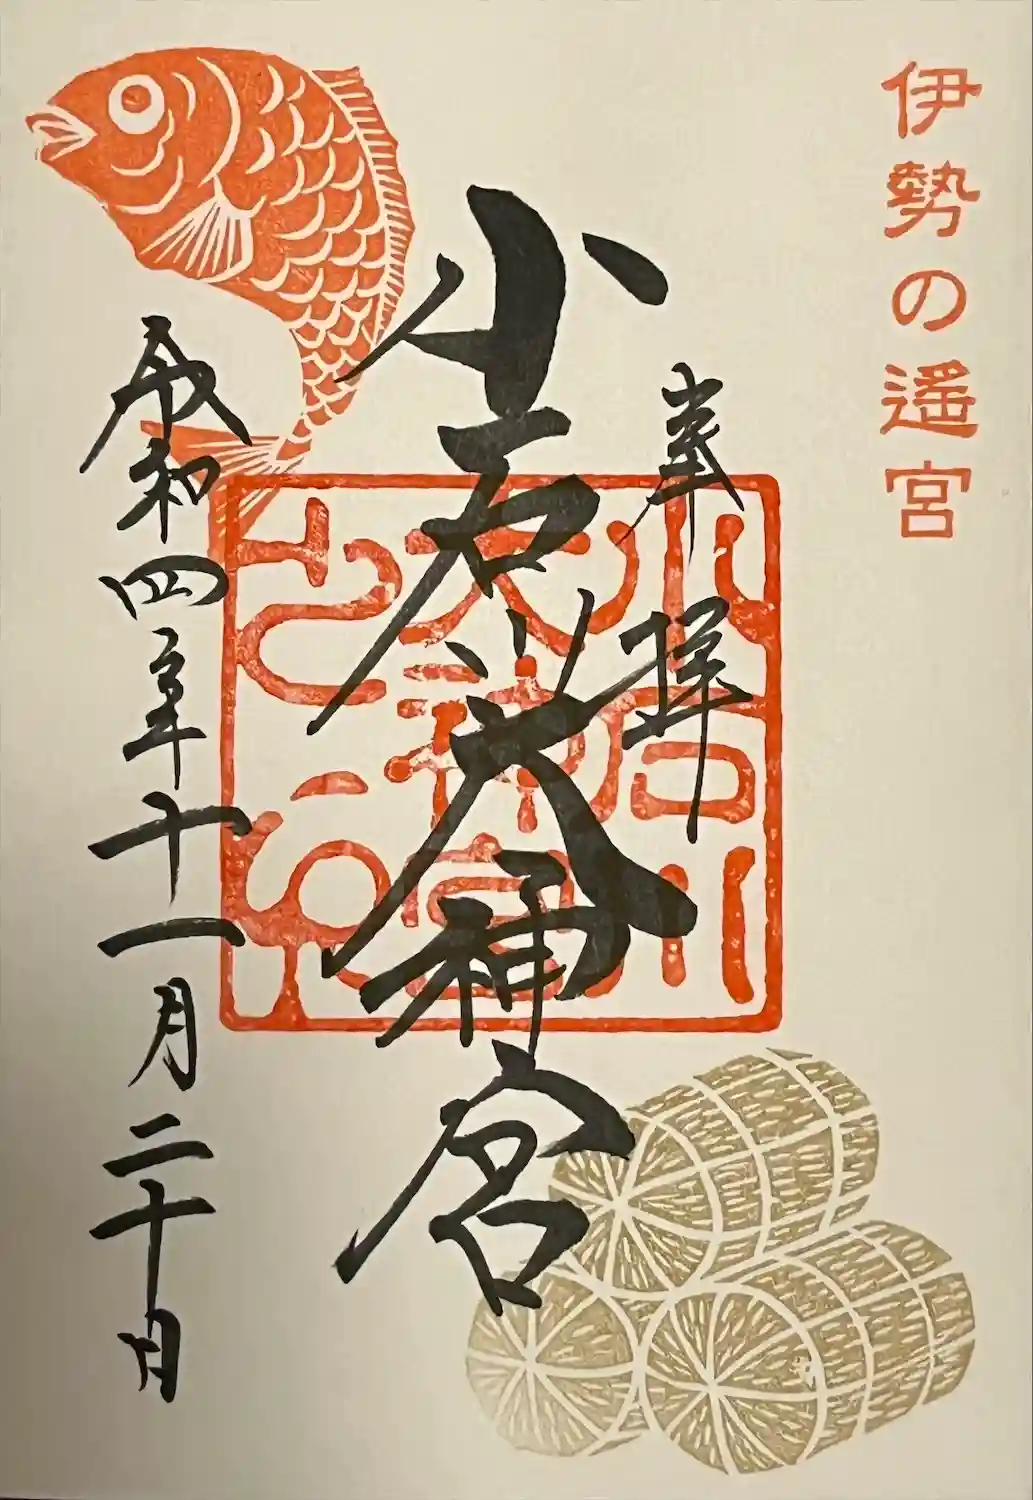 伊勢の遙宮
奉拝
小石川大神宮
令和四年十一月二十日
小石川
大神宮